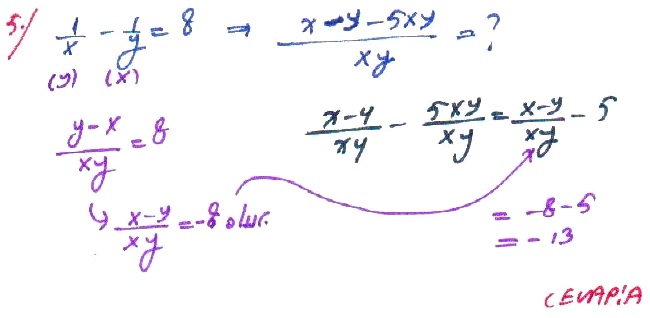 5-) 1/x - 1/y = 8 ⇒ (x-y-5xy)/xy = ?
(y) (x)
(y-x)/xy = 8
(x-y)/xy - 5xy/xy = (x-y)/xy - 5
↳ (x-y)/xy = -8 olur.
= -8-5
= -13
CEVAP:A